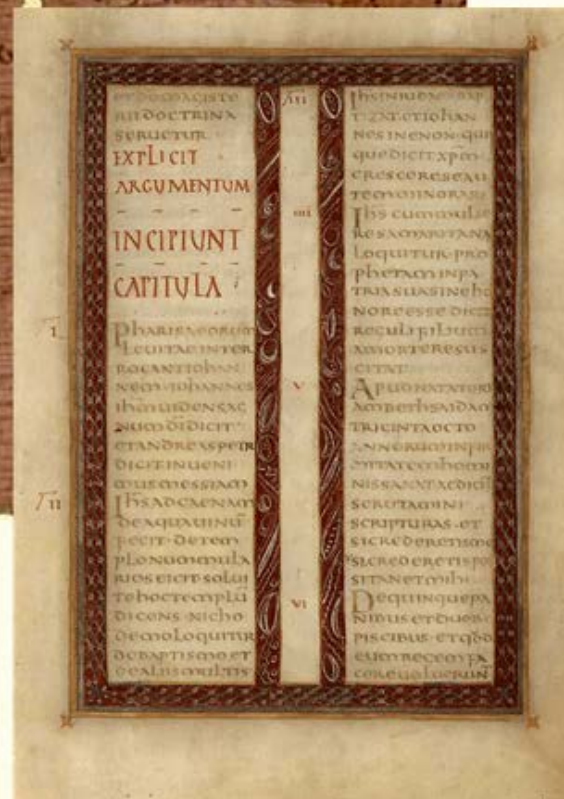 RII DOCTRINA
EXPLICIT
ARGUMENTUM
INCIPIUNT
CAPITULA
I
PHARISAEORUM
LEUITAE INTER
ROGANT IOHAN
NEM IOHANNES
IHM UIDENS AC
NUM DI DICIT
ET ANDREAS PETR
DICIT INUENI
MUS MESSIAM
II
IHS AD CAENAM
DE AQUA UINU
FECIT DE TEM
PLO NUMMULA
RIOS EICIT SOLUI
TE HOC TEMPLU
DICENS NICHO
DEMO LOQUITUR
DE BAPTISMO ET
DE ALIIS MULTIS
III
TIZAT ET IOHAN
NES IN ENON QUI
QUE DICIT XPM
CRESCERE SE AU
TEM MINORARI
IIII
IHS CUM MULIE
RE SAMARITANA
LOQUITUR PRO
PHETAM IN PA
TRIA SUA SINE HO
NORE ESSE DICIT
REGULI FILIUM
A MORTE RESUS
CITAT
V
TRIGINTA OCTO
SCRUTAMINI
SCRIPTURAS ET
SI CREDERETIS MO
SI CREDERETIS FOR
SITAN ET MIHI
VI
DE QUINQUE PA
NIBUS ET DUOB
PISCIBUS ET QUOD
EUM REGEM FA
CERE UOLUERUN